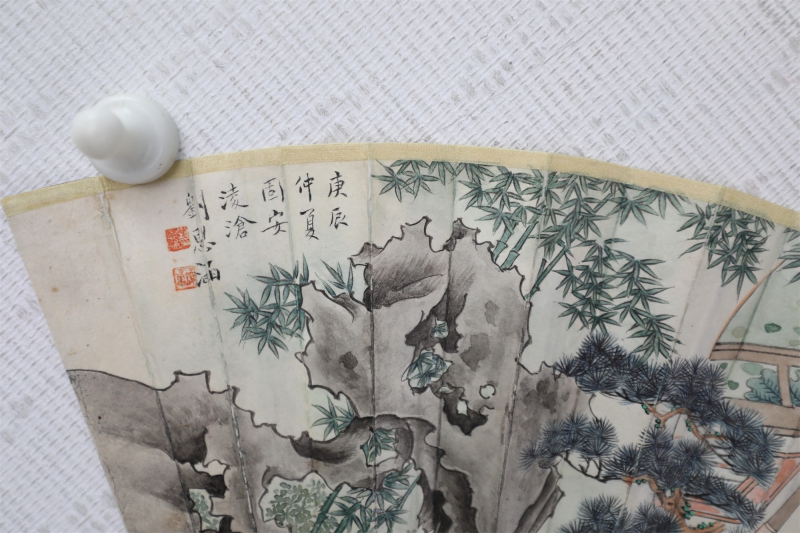 庚辰
仲夏
固安
淩滄
劉惠涵